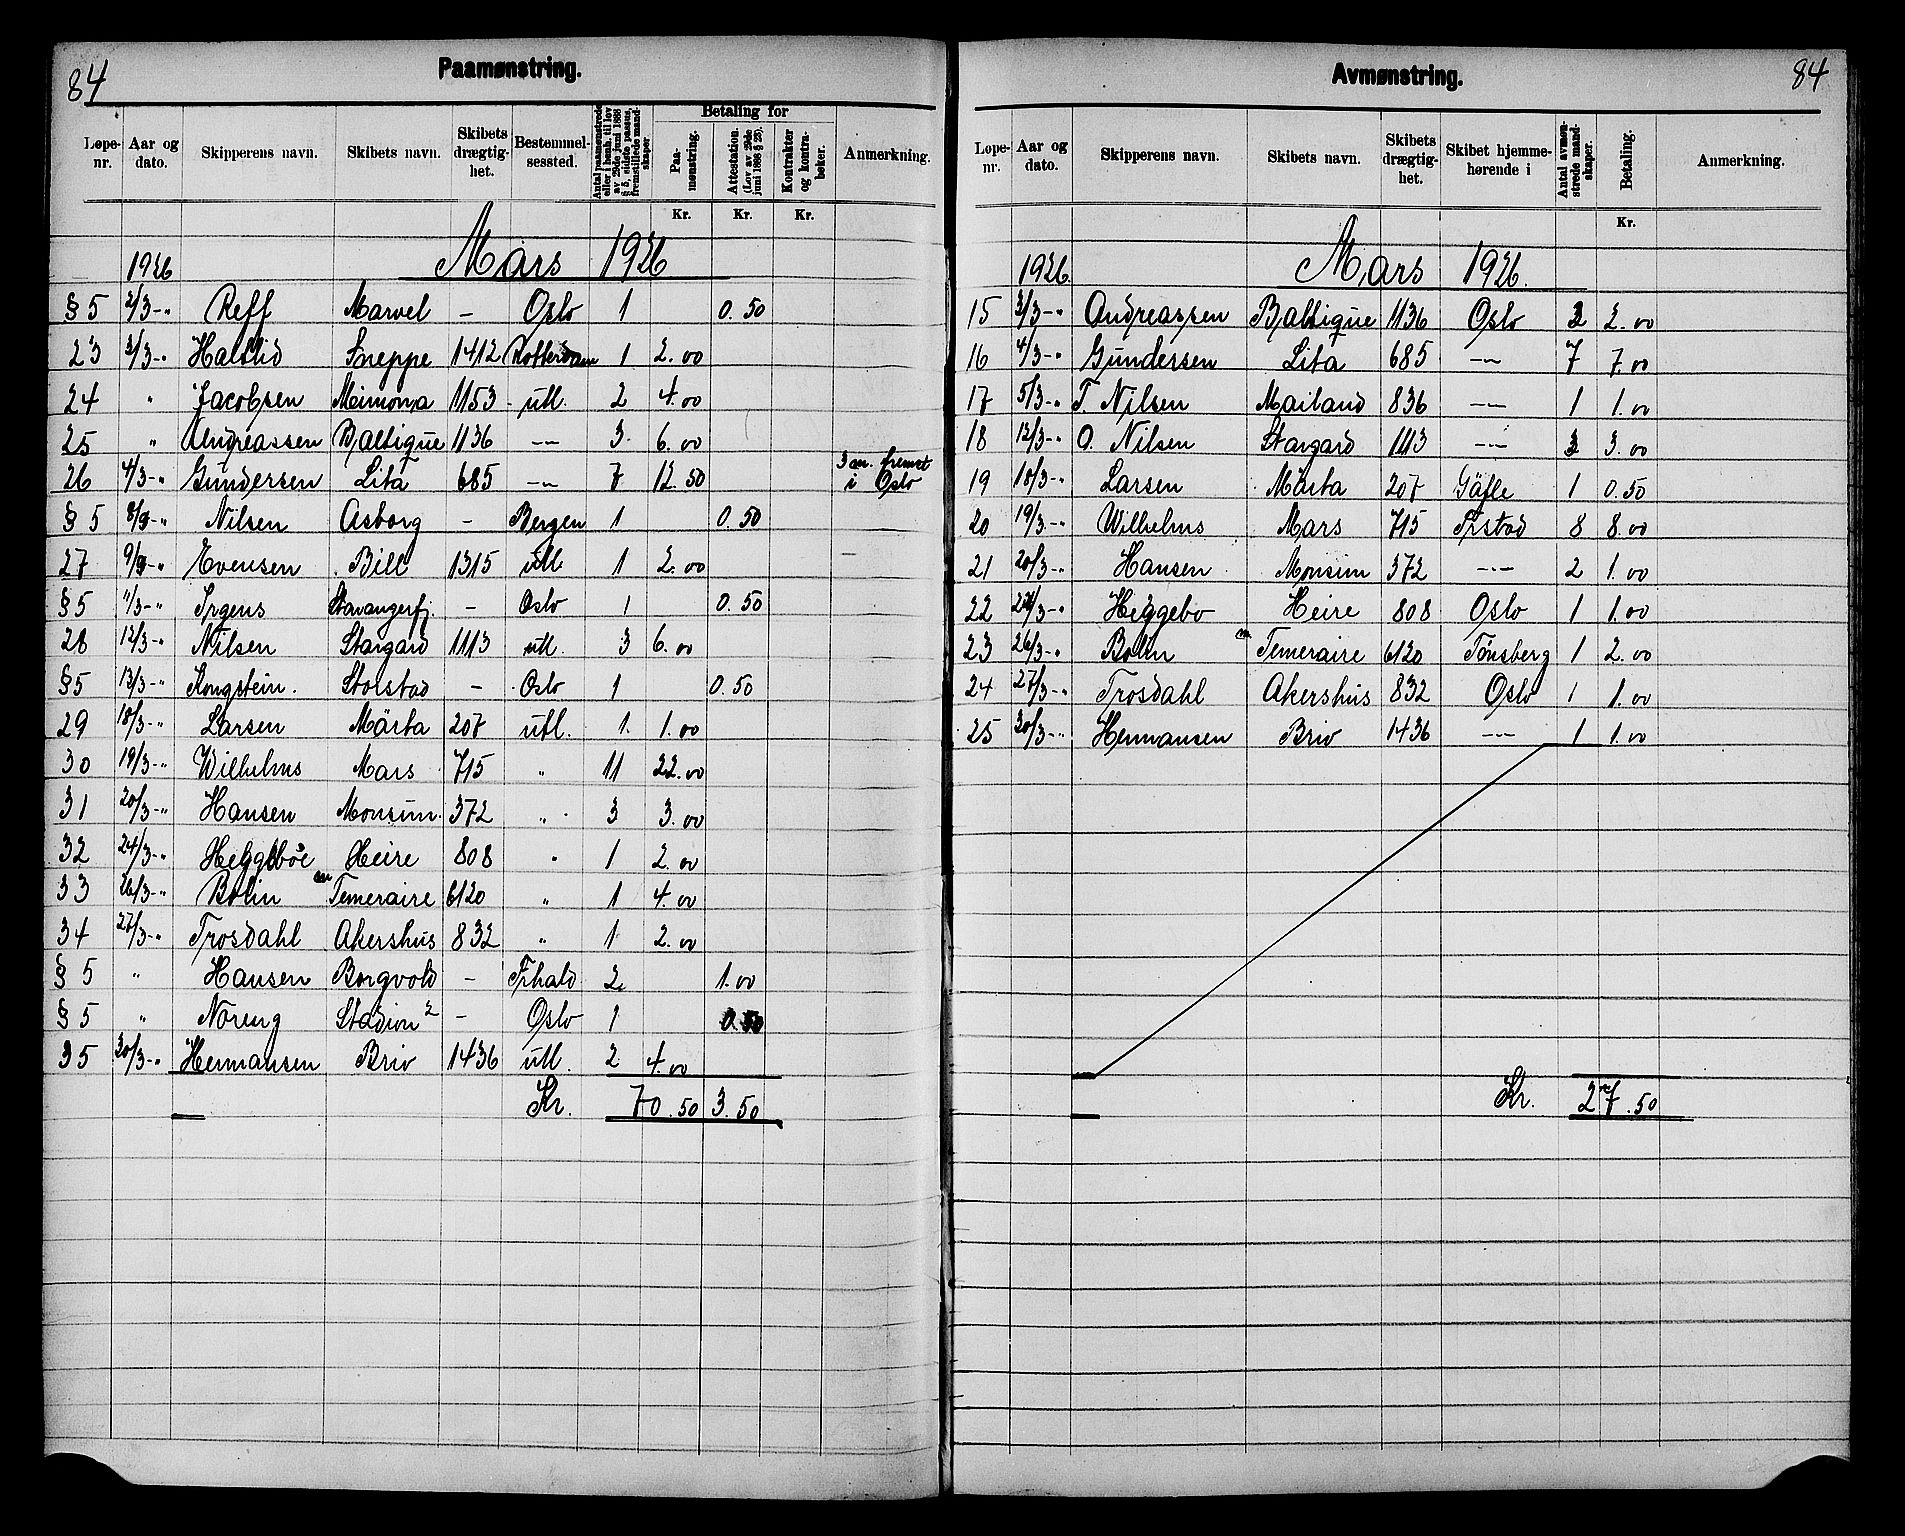 84
Paamønstring.
Løpe-nr. Aar og dato. Skipperens navn. Skibets navn. Skibets drægtighet. Bestemmelsessted. Antal paamønstrede eller i henh. til lov av 29de juni 1888 § 5, sidste passus, fremstillede mandskaper Betaling for Paamønstring. Attestation. (Lov av 29de juni 1888 § 25). Kontrakter og kontrabøker. Anmerkning.
Kr. Kr. Kr.
1926 Mars 1926
§ 5 2/3-" Reff Marvel - Oslo 1 0.50
23 3/3-" Halslid Sneppe 1412 Rotterdam 1 2.00
24 " Jacobsen Mimona 1153 utl. 2 4.00
25 " Andreassen Baltique 1136 -"- 3 6.00
26 4/3-" Gundersen Lita 685 -"- 7 12.50 3 an. fremst i Oslo
§ 5 8/3-" Nilsen Asborg - Bergen 1 0.50
27 9/3-" Evensen Bill 1315 utl 1 2.00
§ 5 11/3-" Irgens Stavangerfj. - Oslo 1 0.50
28 12/3-" Nilsen Stargard 1113 utl. 3 6.00
§ 5 13/3-" Kongstein. Storstad - Oslo 1 0.50
29 18/3-" Larsen Märta 207 utl. 1. 1.00
30 19/3-" Wilhelms Mars 715 " 11 22.00
31 20/3-" Hansen Monsim 372 " 3 3.00
32 24/3-" Heggebøe Heire 808 " 1 2.00
33 26/3-" Bolin Temeraire 6120 " 1 4.00
34 27/3-" Trosdahl Akershus 832 " 1 2.00
§ 5 " Hansen Borgvold - Frhald 2 1.00
§ 5 " Noreng Stadion 2 - Oslo 1 0.50
35 30/3-" Hermansen Brio 1436 utl. 2 4.00
Kr. 70.50 3.50
84
Avmønstring.
Løpe-nr. Aar og dato. Skipperens navn. Skibets navn. Skibets drægtighet. Skibet hjemmehørende i Antal avmønstrede mandskaper. Betaling. Anmerkning.
Kr.
1926. Mars 1926.
15 3/3-" Andreassen Baltique 1136 Oslo 2.00
16 4/3-" Gundersen Lita 685 -"- 7 7.00
17 5/3-" T. Nilsen Mailand 836 -"- 1 1.00
18 12/3-" O. Nilsen Stargard 1113 -"- 3 3.00
19 18/3-" Larsen Märta 207 Gäfle 1 0.50
20 19/3-" Wilhelms Mars 715 Frstad 8 8.00
21 20/3-" Hansen Monsim 372 -"- 2 1.00
22 24/3-" Heggebø Heire 808 Oslo 1 1.00
23 26/3-" Bolin Temeraire 6120 Tønsberg 1 2.00
24 27/3-" Trosdahl Akershus 832 Oslo 1 1.00
25 30/3-" Hermansen Brio 1436 -"- 1 1.00
Kr. 27.50